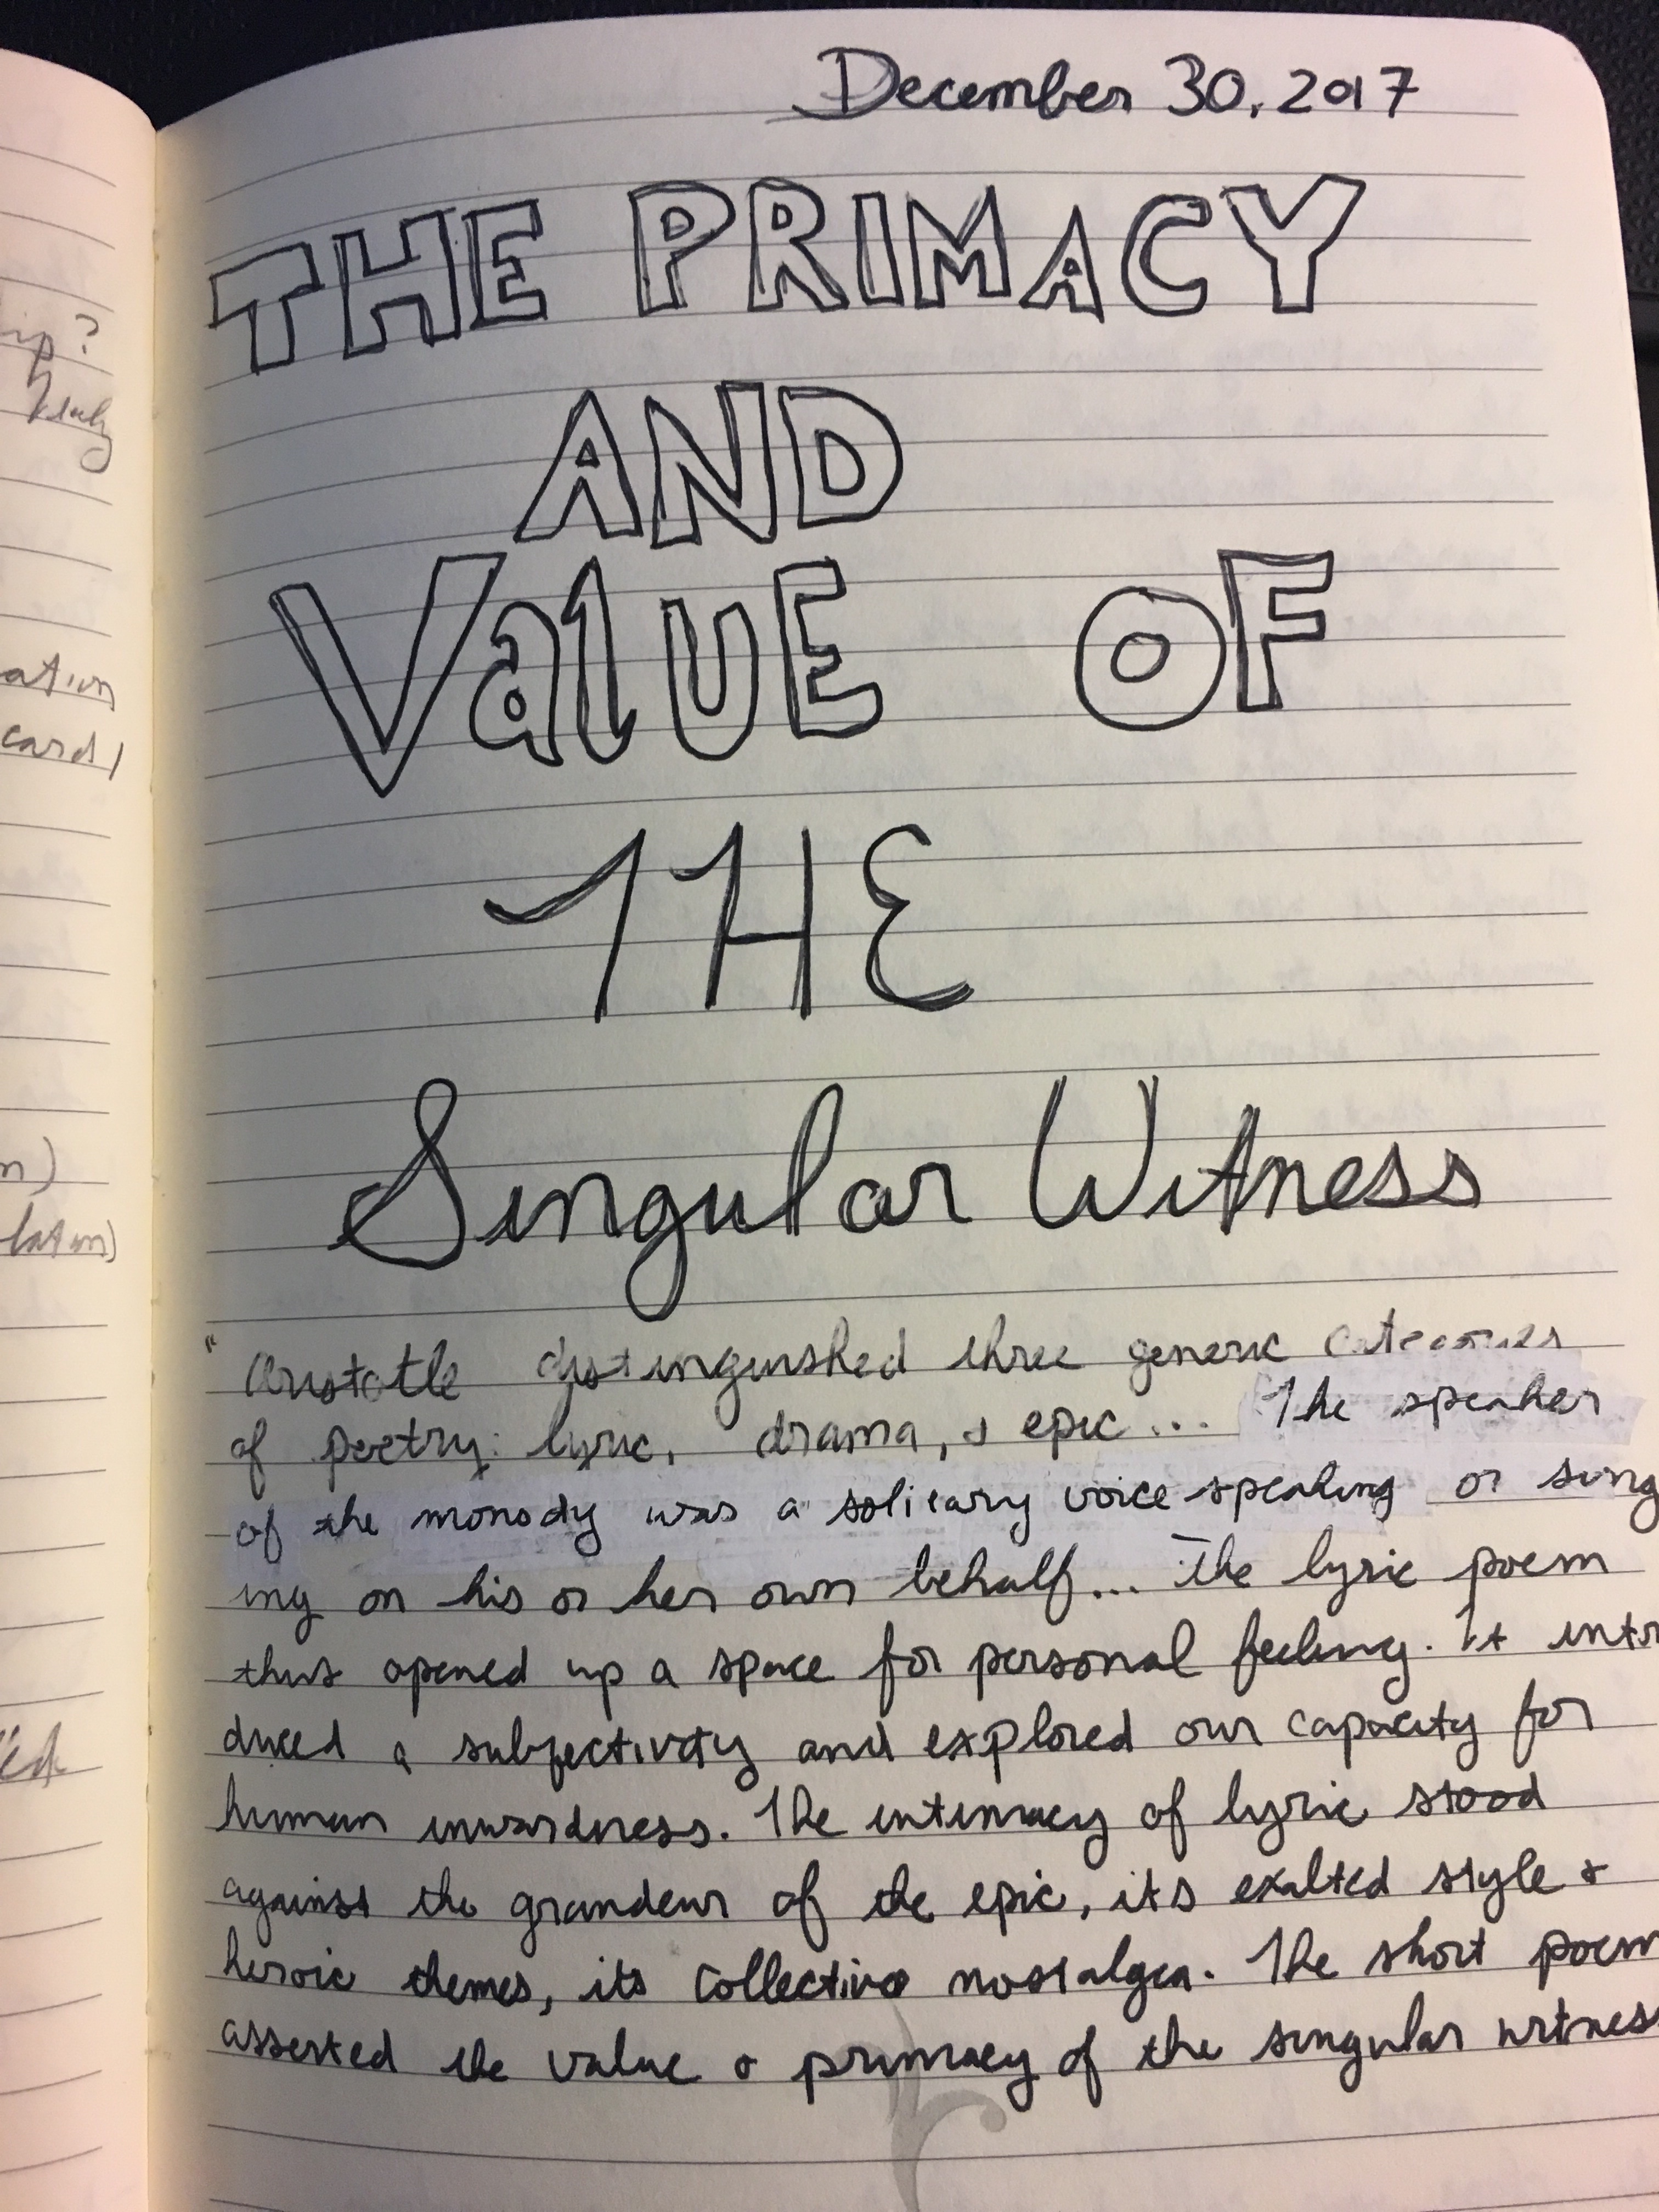 December 30, 2017
THE PRIMACY
AND
ValUE OF
THE
Singular Witness
"Aristotle distinguished three generic categories
of poetry: lyric, drama, & epic... The speaker
of the monody was a solitary voice speaking or sing
ing on his or her own behalf... The lyric poem
thus opened up a space for personal feeling. It intr
duced a subjectivity and explored our capacity for
human inwardness. The intimacy of lyric stood
against the grandeur of the epic, its exalted style &
heroic themes, its collective nostalgia. The short poem
asserted the value & primacy of the singular witness
ip?
ation
card/
n)